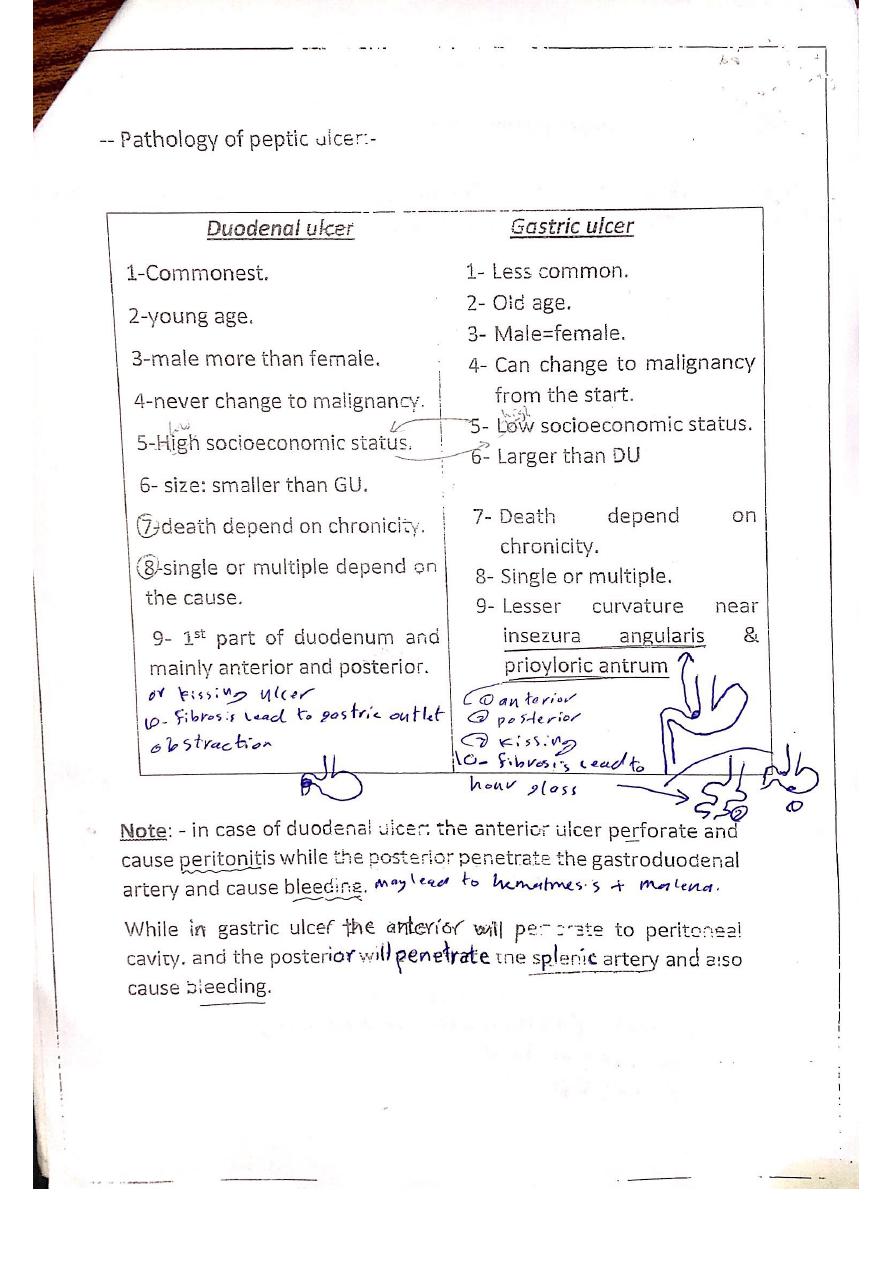 -- Pathology of peptic ulcer:-
Duodenal ulcer
1-Commonest.
2-young age.
3-male more than female.
4-never change to malignancy.
low
5-High socioeconomic status.
6- size: smaller than GU.
7-death depend on chronicity.
8-single or multiple depend on
the cause.
9- 1st part of duodenum and
mainly anterior and posterior.
or kissing ulcer
10- fibrosis lead to gastric outlet
obstraction
Gastric ulcer
1- Less common.
2- Old age.
3- Male=female.
4- Can change to malignancy
from the start.
high
5- Low socioeconomic status.
6- Larger than DU
7- Death depend on
chronicity.
8- Single or multiple.
9- Lesser curvature near
insezura angularis &
prioyloric antrum
① anterior
② posterior
kissing
10- fibrosis lead to
hour glass
Note: - in case of duodenal ulcer: the anterior ulcer perforate and
cause peritonitis while the posterior penetrate the gastroduodenal
artery and cause bleeding. may lead to hematmesis + malena.
While in gastric ulcer the anterior will to peritoneal
cavity. and the posterior will penetrate the splenic artery and also
cause bleeding.